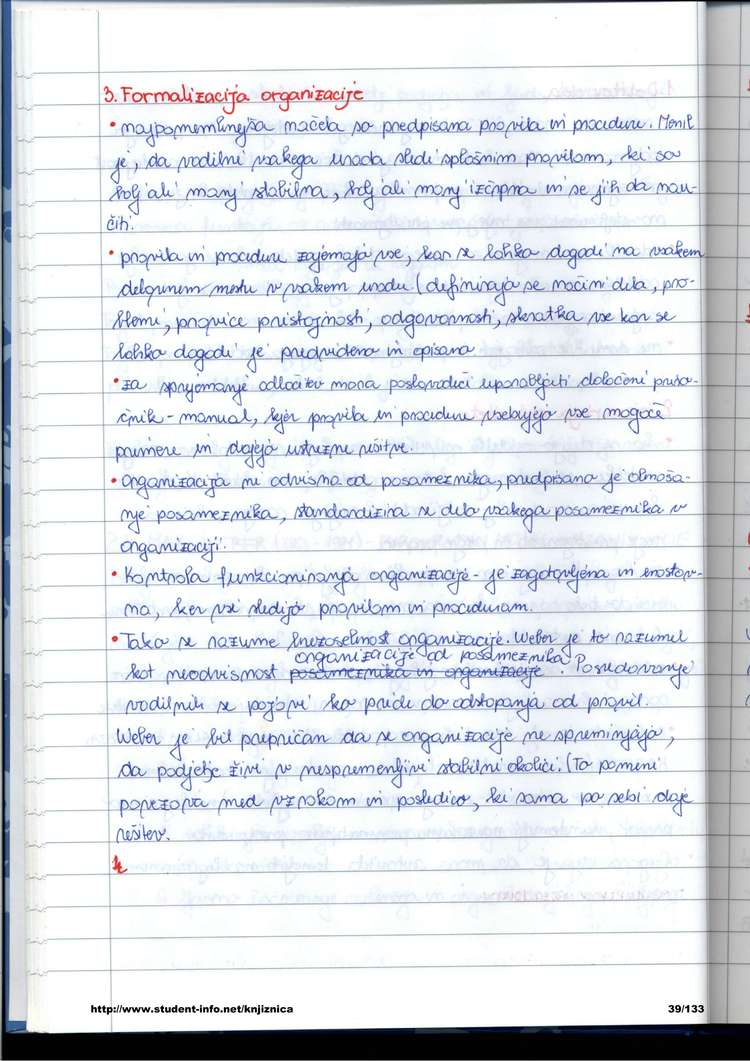 3. Formalizacija organizacije
• najpomembnejša načela so predpisana pravila in procedure. Menil
je, da vodilni vsakega urada sledi splošnim pravilom, ki so
bolj ali manj stabilna, bolj ali manj izčrpna in se jih da nau-
čiti.
• pravila in procedure zajemajo vse, kar se lahko dogodi na vsakem
delovnem mestu v vsakem uradu (definirajo se načini dela, pro-
blemi, pravice pristojnosti, odgovornosti, skratka vse kar se
lahko dogodi je predvideno in opisano
• za sprejemanje odločitev mora poslovodeči uporabljati določeni priro-
čnik - manual, kjer pravila in procedure vsebujejo vse mogoče
primere in dajejo ustrezne rešitve.
• Organizacija ni odvisna od posameznika, predpisano je obnaša-
nje posameznika, standardizira se delo vsakega posameznika v
organizaciji.
• Kontrola funkcioniranja organizacije - je zagotovljena in enostav-
na, ker vsi sledijo pravilom in proceduram.
• Tako se razume brezosebnost organizacije. Weber je to razumel
organizacije od posameznika
kot neodvisnost posameznika in organizacije. Posredovanje
vodilnih se pojavi ko pride do odstopanja od pravil.
Weber je bil prepričan da se organizacije ne spreminjajo,
da podjetje živi v nespremenljivi stabilni okolici. (To pomeni
povezava med vzrokom in posledico, ki sama po sebi daje
rešitev.
http://www.student-info.net/knjiznica
39/133